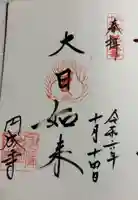 奉拝
令和六年
十月十四日
大日如来
円成寺